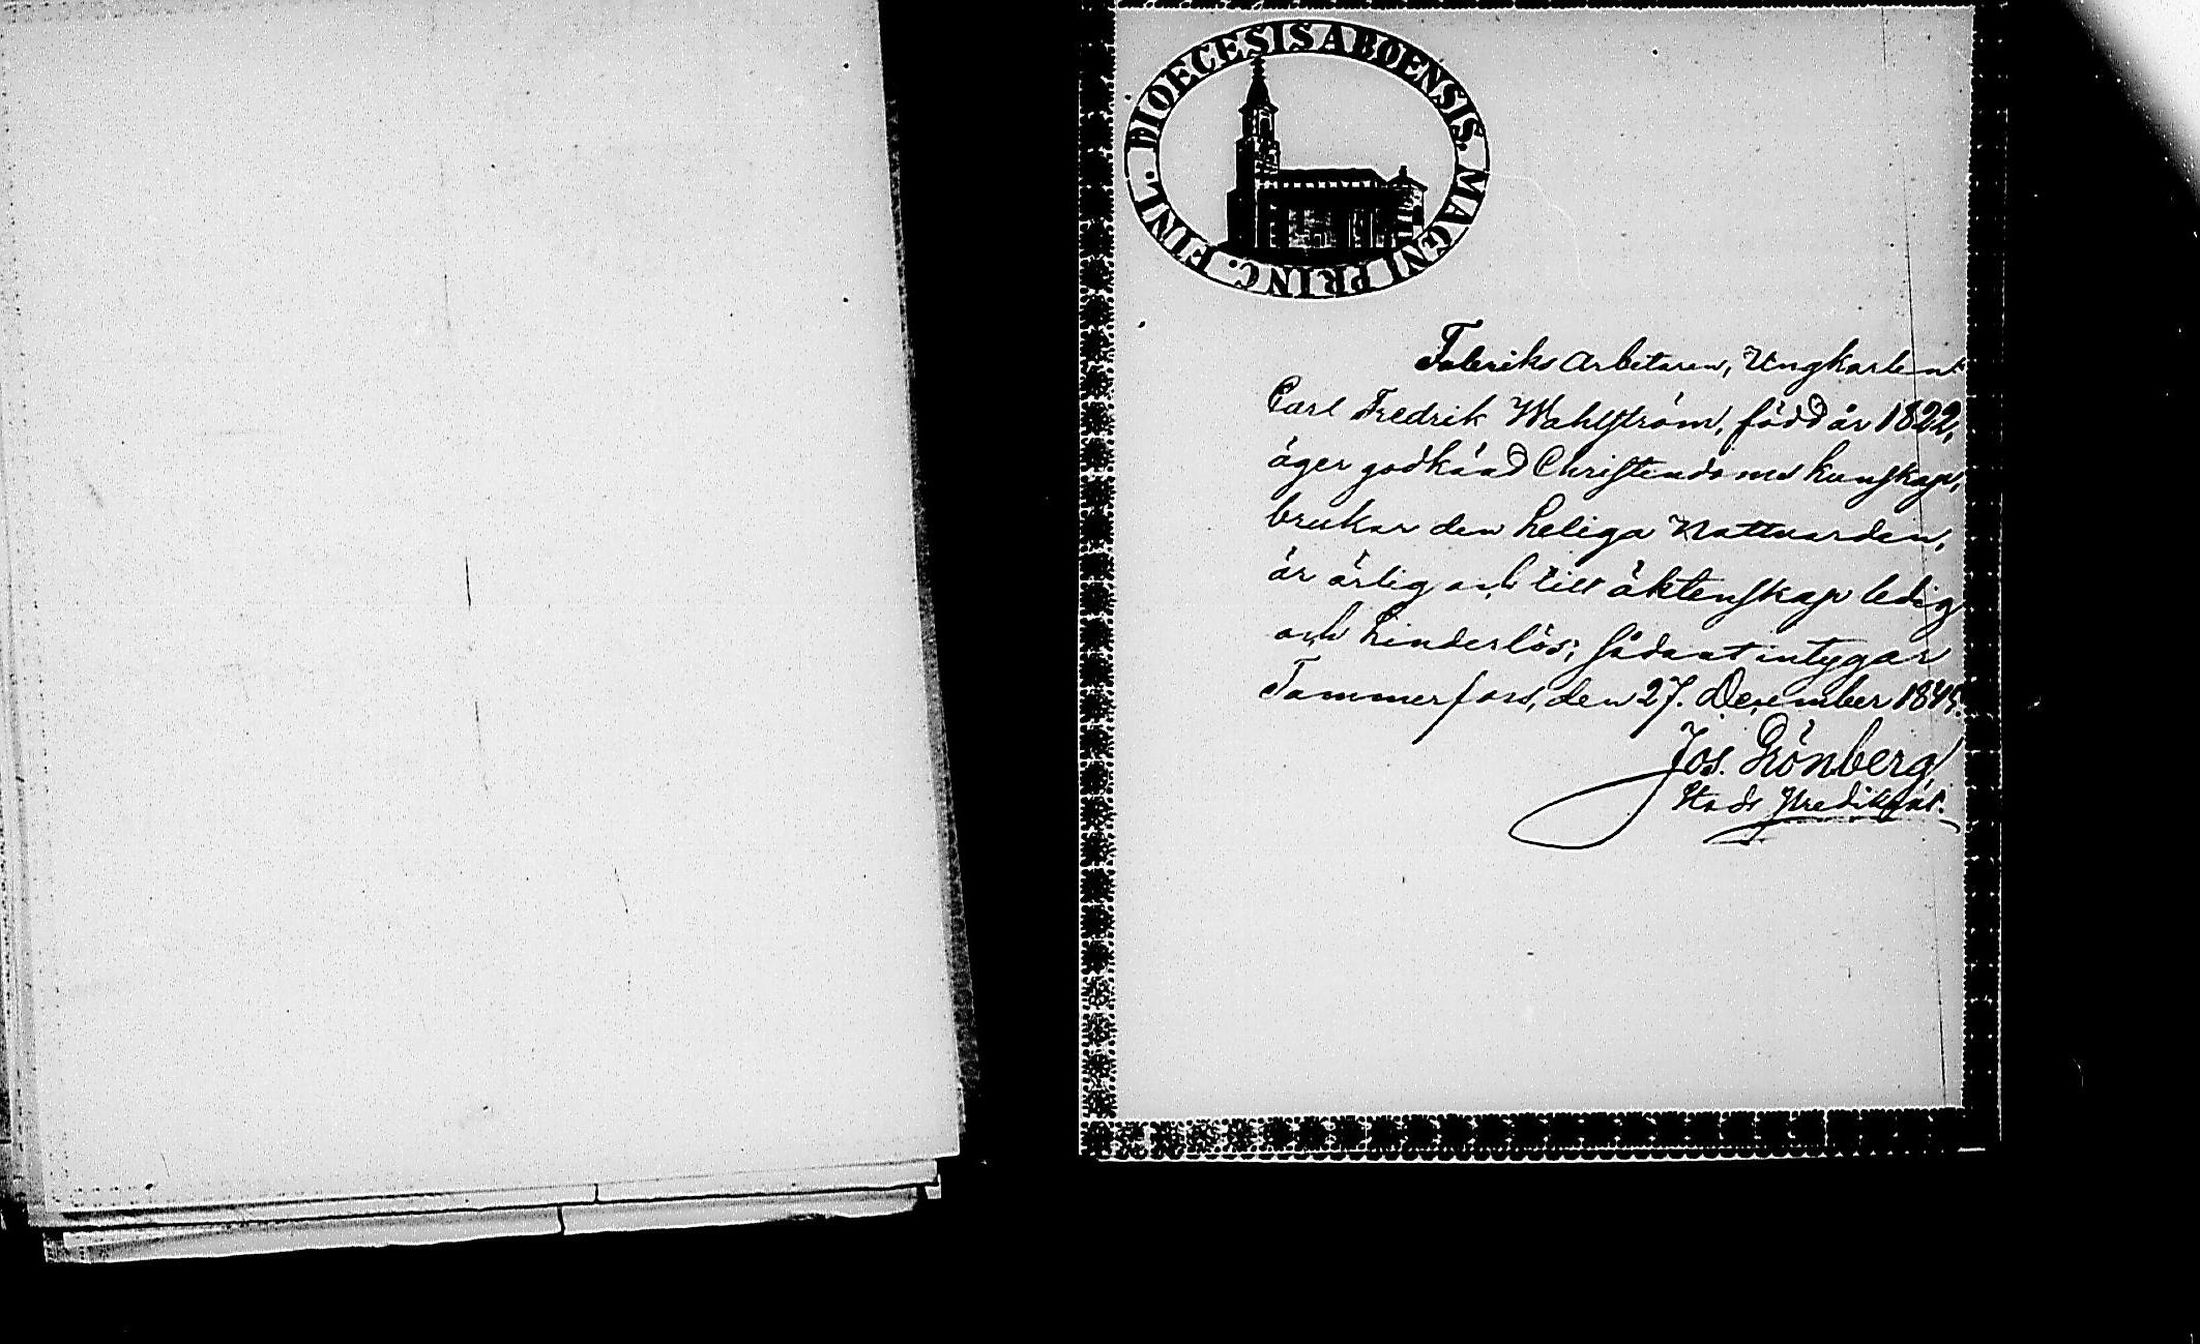 DIOECESIS ABOENSIS. MAGNI PRINC. FINL.
Fabriks Arbetaren, Ungkarlen
Carl Fredrik Wahlström, född år 1822,
äger godkänd Christendoms kunskap,
brukar den heliga Nattvarden,
är ärlig och till äktenskap ledig
och hinderlös; sådant intygar
Tammerfors, den 27. December 1845.
Jos. Grönberg,
Stads Predikant.